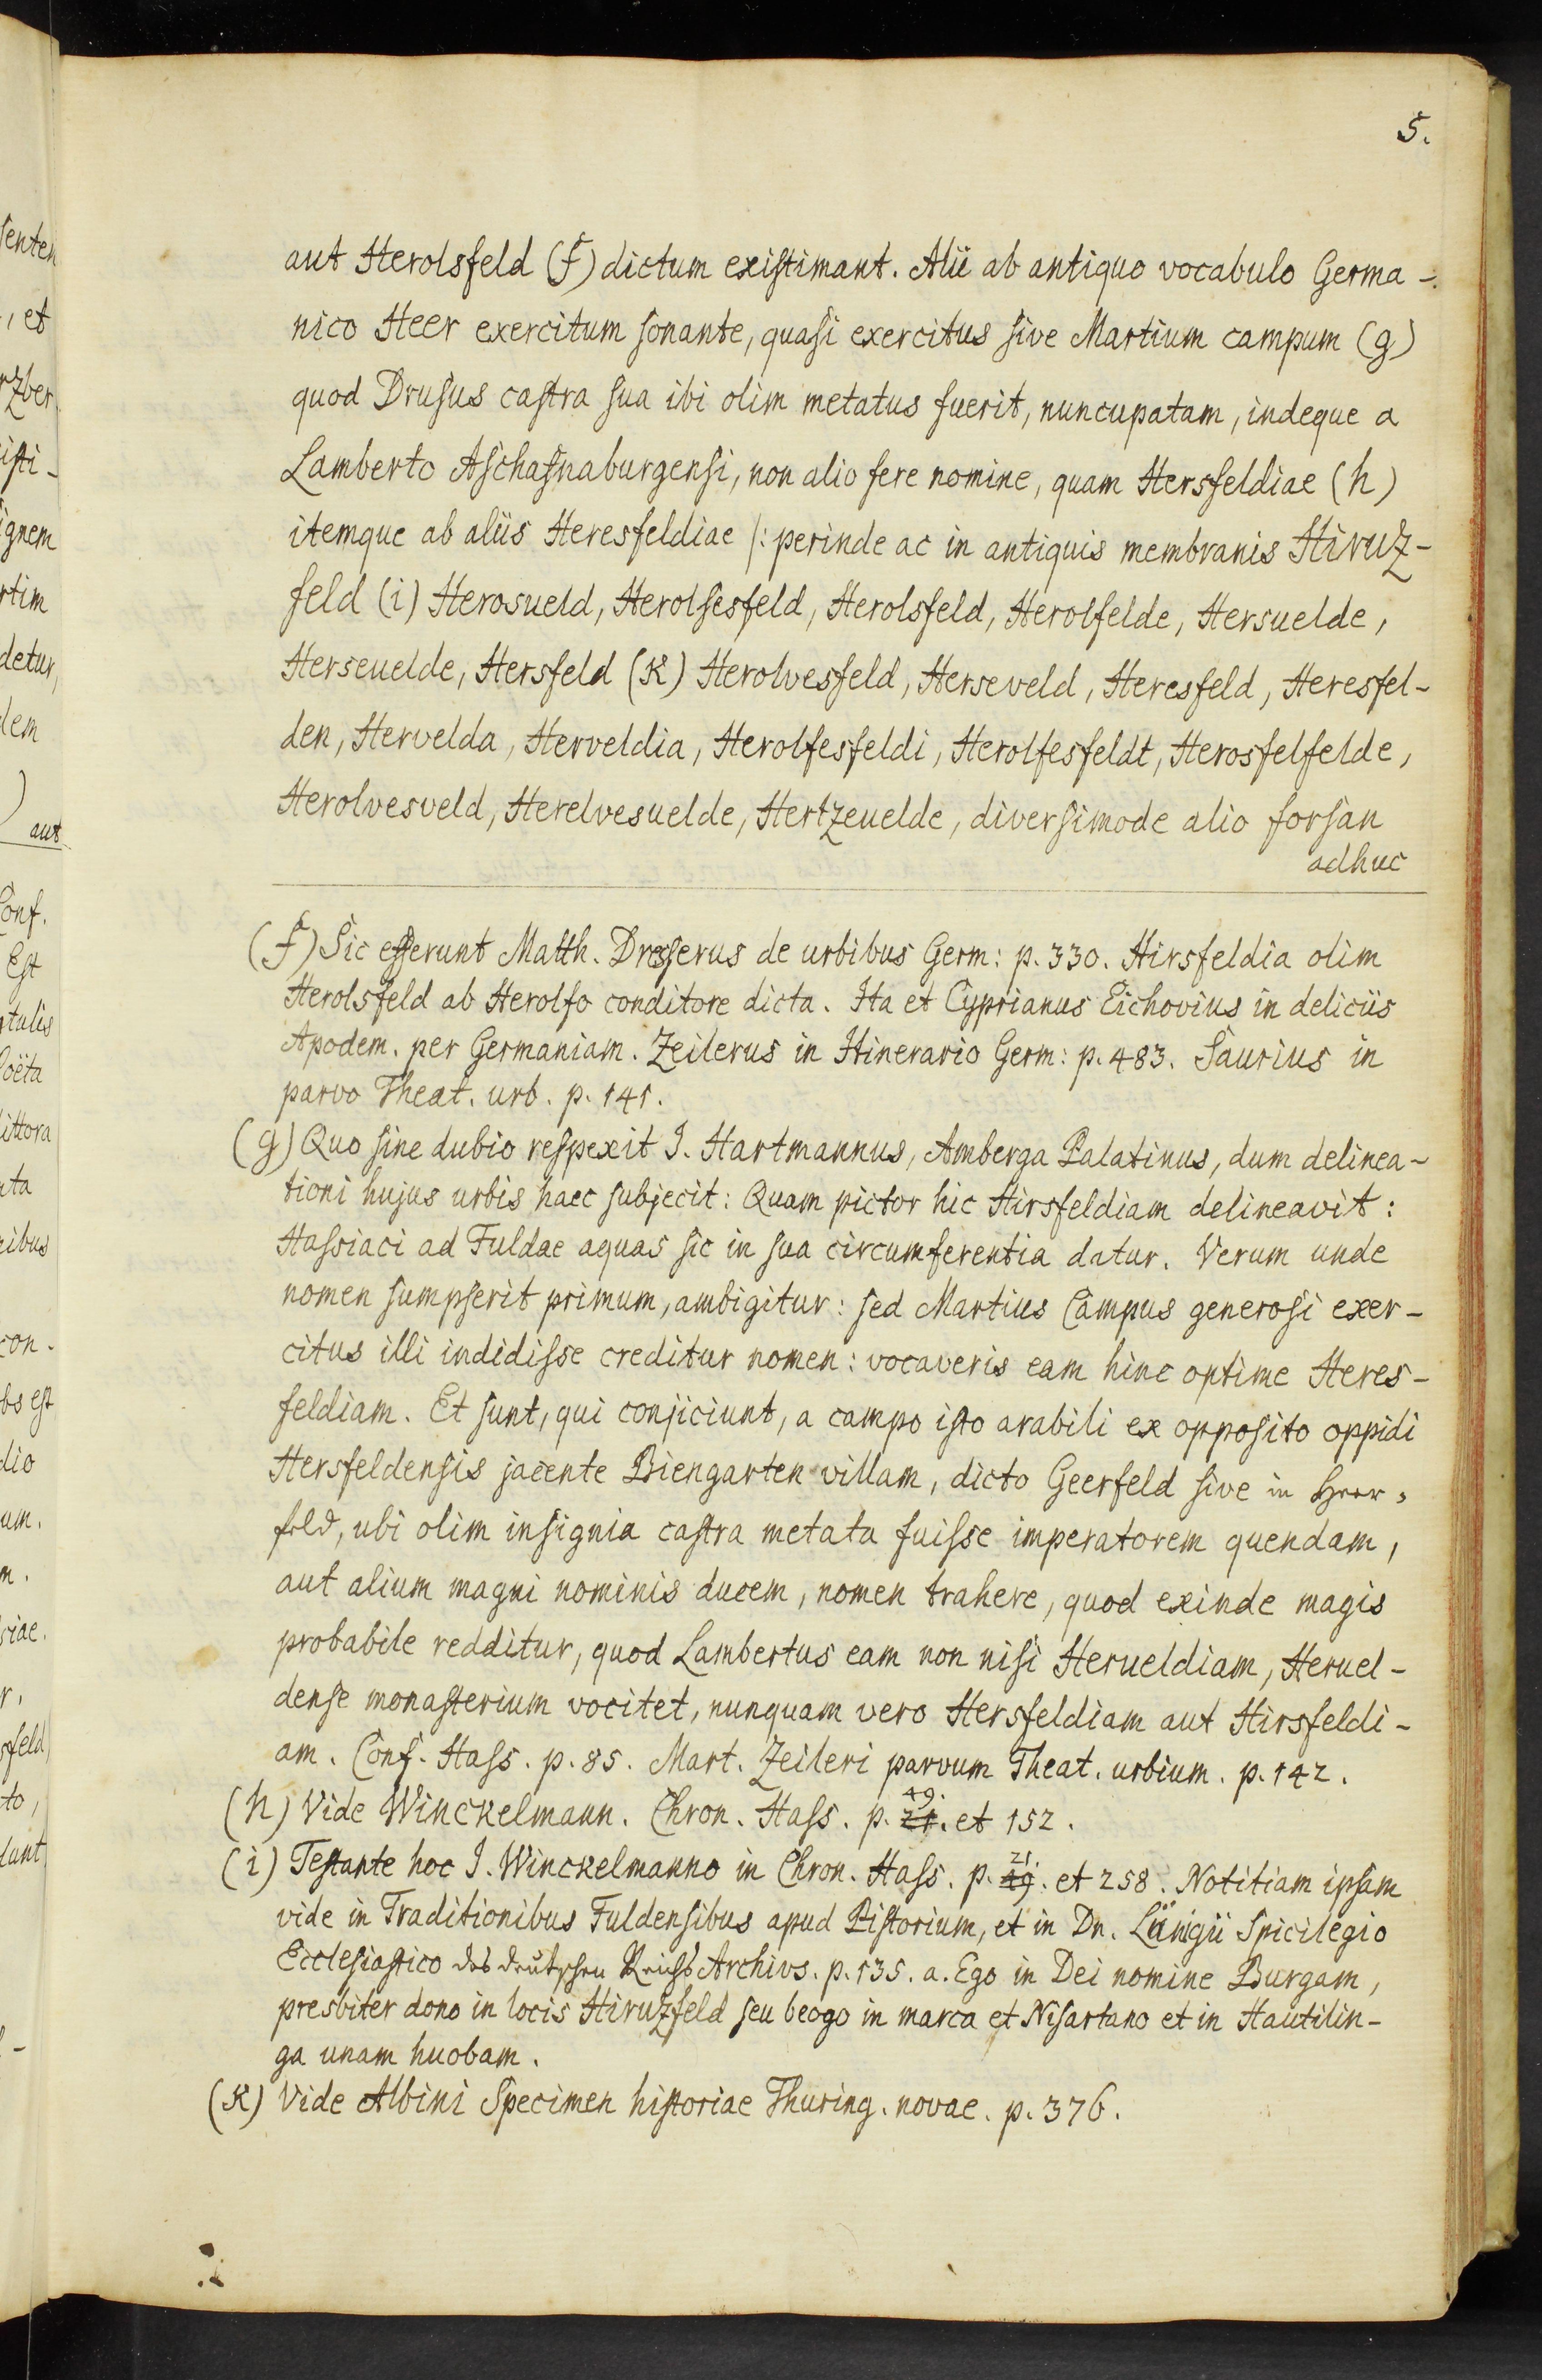 5.
aut Herolsfeld (f) dictum exiſtimant. Alii ab antiquo vocabulo Germa-
nico Heer exercitum ſonante, quaſi exercitus ſive Martium campum (g)
quod Druſus caſtra ſua ibi olim metatus fuerit, nuncupatam, indeque a
Lamberto Aſchafnaburgenſi, non alio fere nomine, quam Hersfeldiae (h)
itemque ab aliis Heresfeldiae /: perinde ac in antiquis membranis Hiruz-
feld (i) Herosueld, Herolſesfeld, Herolsfeld, Herolfelde, Hersuelde,
Herseuelde, Hersfeld (K) Herolvesfeld, Herseveld, Heresfeld, Heresfel-
den, Hervelda, Herveldia, Herolfesfeldi, Herolfesfeldt, Herosfelfelde,
Herolvesveld, Herelvesuelde, Hertzeuelde, diverſimode alio forſan
adhuc
(f) Sic efferunt Matth. Dreſſerus de urbibus Germ: p. 330. Hirsfeldia olim
Herolsfeld ab Herolfo conditore dicta. Ita et Cyprianus Eichovius in deliciis
Apodem. per Germaniam. Zeilerus in Itinerario Germ: p. 483. Saurius in
parvo Theat. urb. p. 141.
(g) Quo ſine dubio reſpexit I. Hartmannus, Amberga Palatinus, dum delinea-
tioni hujus urbis haec ſubjecit: Quam pictor hic Hirsfeldiam delineavit:
Haſsiaci ad Fuldae aquas ſic in ſua circumferentia datur. Verum unde
nomen ſumpſerit primum, ambigitur: ſed Martius Campus generoſi exer-
citus illi indidiſse creditur nomen: vocaveris eam hinc optime Heres-
feldiam. Et ſunt, qui conjiciunt, a campo iſto arabili ex oppoſito oppidi
Hersfeldenſis jacente Biengarten villam, dicto Geerfeld ſive in Heer-
feld, ubi olim inſignia caſtra metata fuiſse imperatorem quendam,
aut alium magni nominis ducem, nomen trahere, quod exinde magis
probabile redditur, quod Lambertus eam non niſi Herueldiam, Heruel-
denſe monaſterium vocitet, nunquam vero Hersfeldiam aut Hirsfeldi-
am. Conf. Haſs. p. 85. Mart. Zeileri parvum Theat. urbium. p. 142.
(h) Vide Winckelmann. Chron. Haſs. p. 21. 49. et 152.
(i) Teſtante hoc I. Winckelmanno in Chron. Haſs. p. 49. 21. et 258. Notitiam ipſam
vide in Traditionibus Fuldenſibus apud Piſtorium, et in Dn. Lünigii Spicilegio
Eccleſiaſtico des deutſchen Reichs Archivs. p. 135. a. Ego in Dei nomine Burgam,
presbiter dono in locis Hiruzfeld ſeu beogo in marca et Niſartano et in Hautilin-
ga unam huobam.
(K) Vide Albini Specimen hiſtoriae Thuring. novae. p. 376.